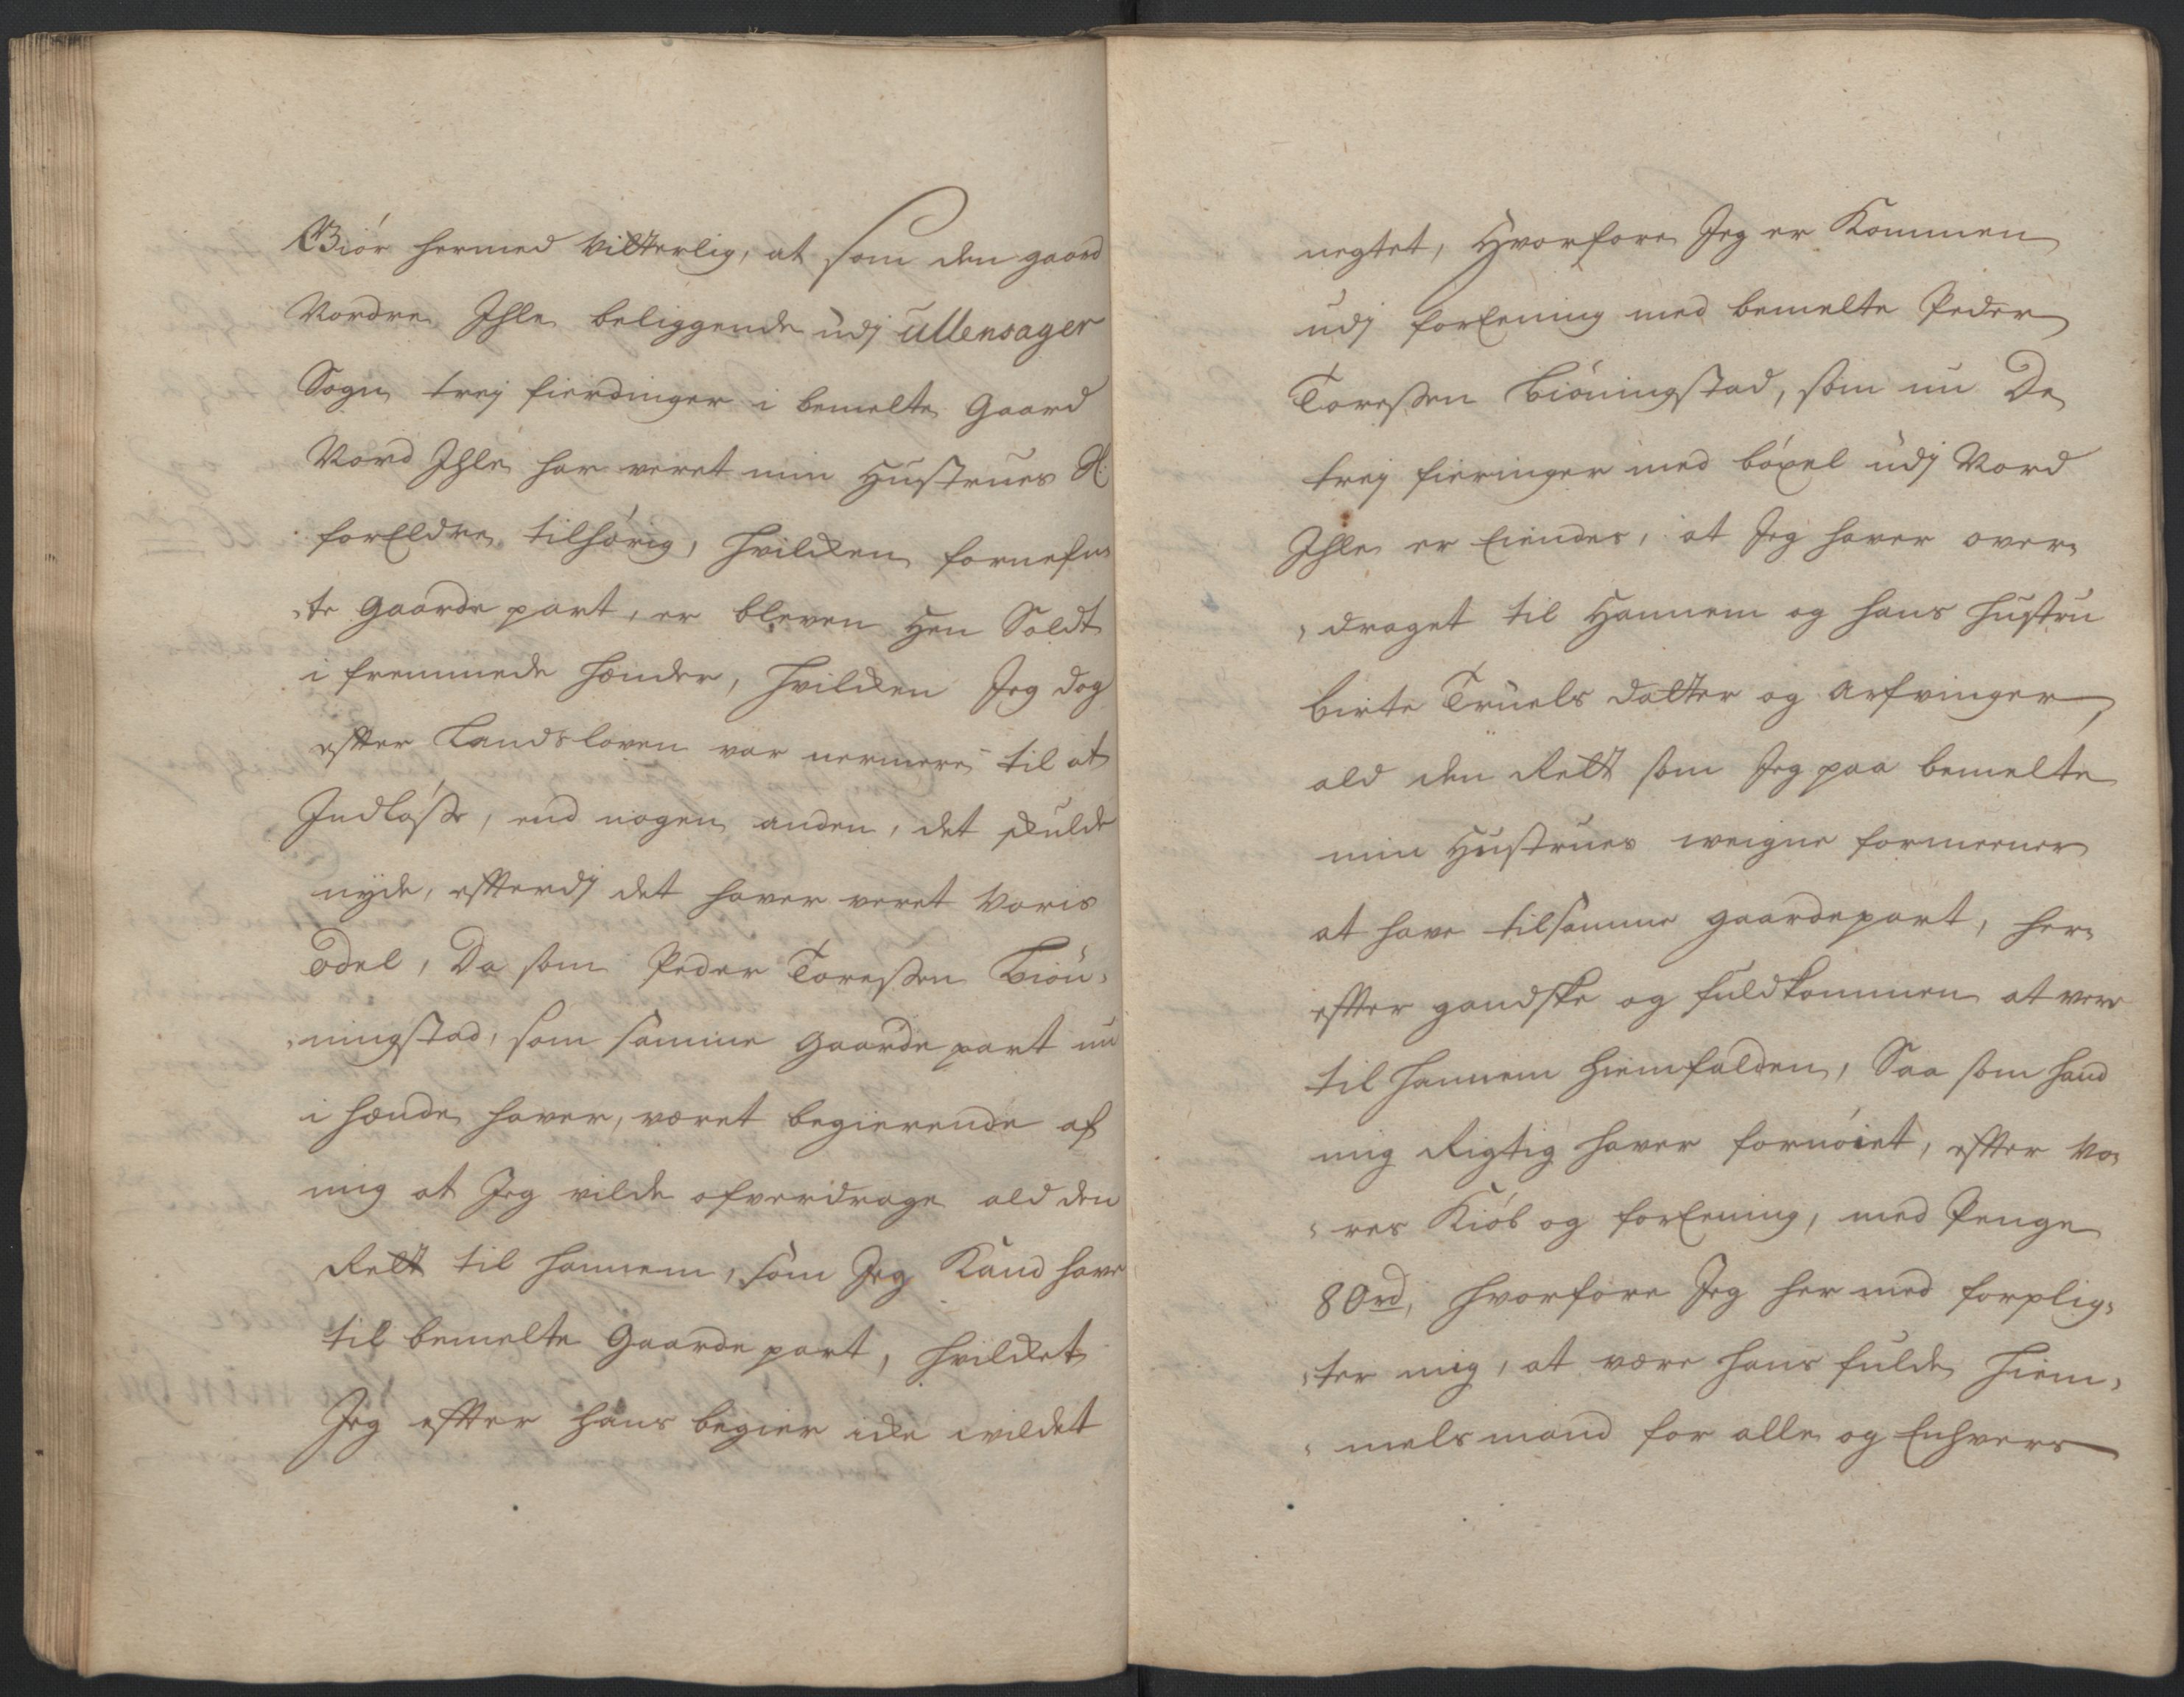 Giör hermed Vitterlig, at som den gaord
Nordre Ihle beliggende udj Ullensager
Sogn trej fierdinger i bemelte Gaard
Nord Ihle har veret min Hustrues Sl:
forEldre tilhörig, hvilcken fornefn„
„te Gaarde part, er bleven Hen Soldt
i fremmede hænder, hvilcken Jeg dog
efter Landsloven var nermere til at
Indlösse, end nogen anden, det skulde
nyde, efterdj det haver veret Voris
Odel, Da som Peder Toressen Biön„
„ningstad, som samme Gaarde part nu
i hænde haver, været begierende af
mig at Jeg vilde ofverdrage ald den
Rett til hannem, som Jeg Kand have
til bemelte Gaarde part, hvilcket
Jeg efter hans begier icke vildet
negtet, Hvorfore Jeg er Kommen
udj forEening med bemelte Peder
Toressen Biöningstad, som nu De
trej fieringer med böxel udj Nord
Ihle er Eiendes, at Jeg haver over„
„draget til Hannem og hans hustru
Birte Truels datter og Arfvinger,
ald den Rett som Jeg paa bemelte
min Hustrues weigne formeener
at have tilsamme gaardepart, her„
efter gandske og fuldkommen at vere
til hannem hiemfalden, Saa som hand
mig Rigtig haver fornöiet, efter Vo„
„res Kiöb og forEening, med Penge
80rd, hvorfore Jeg her med forplig„
„ter mig, at være hans fulde hiem„
„mels mand for alle og Enhvers